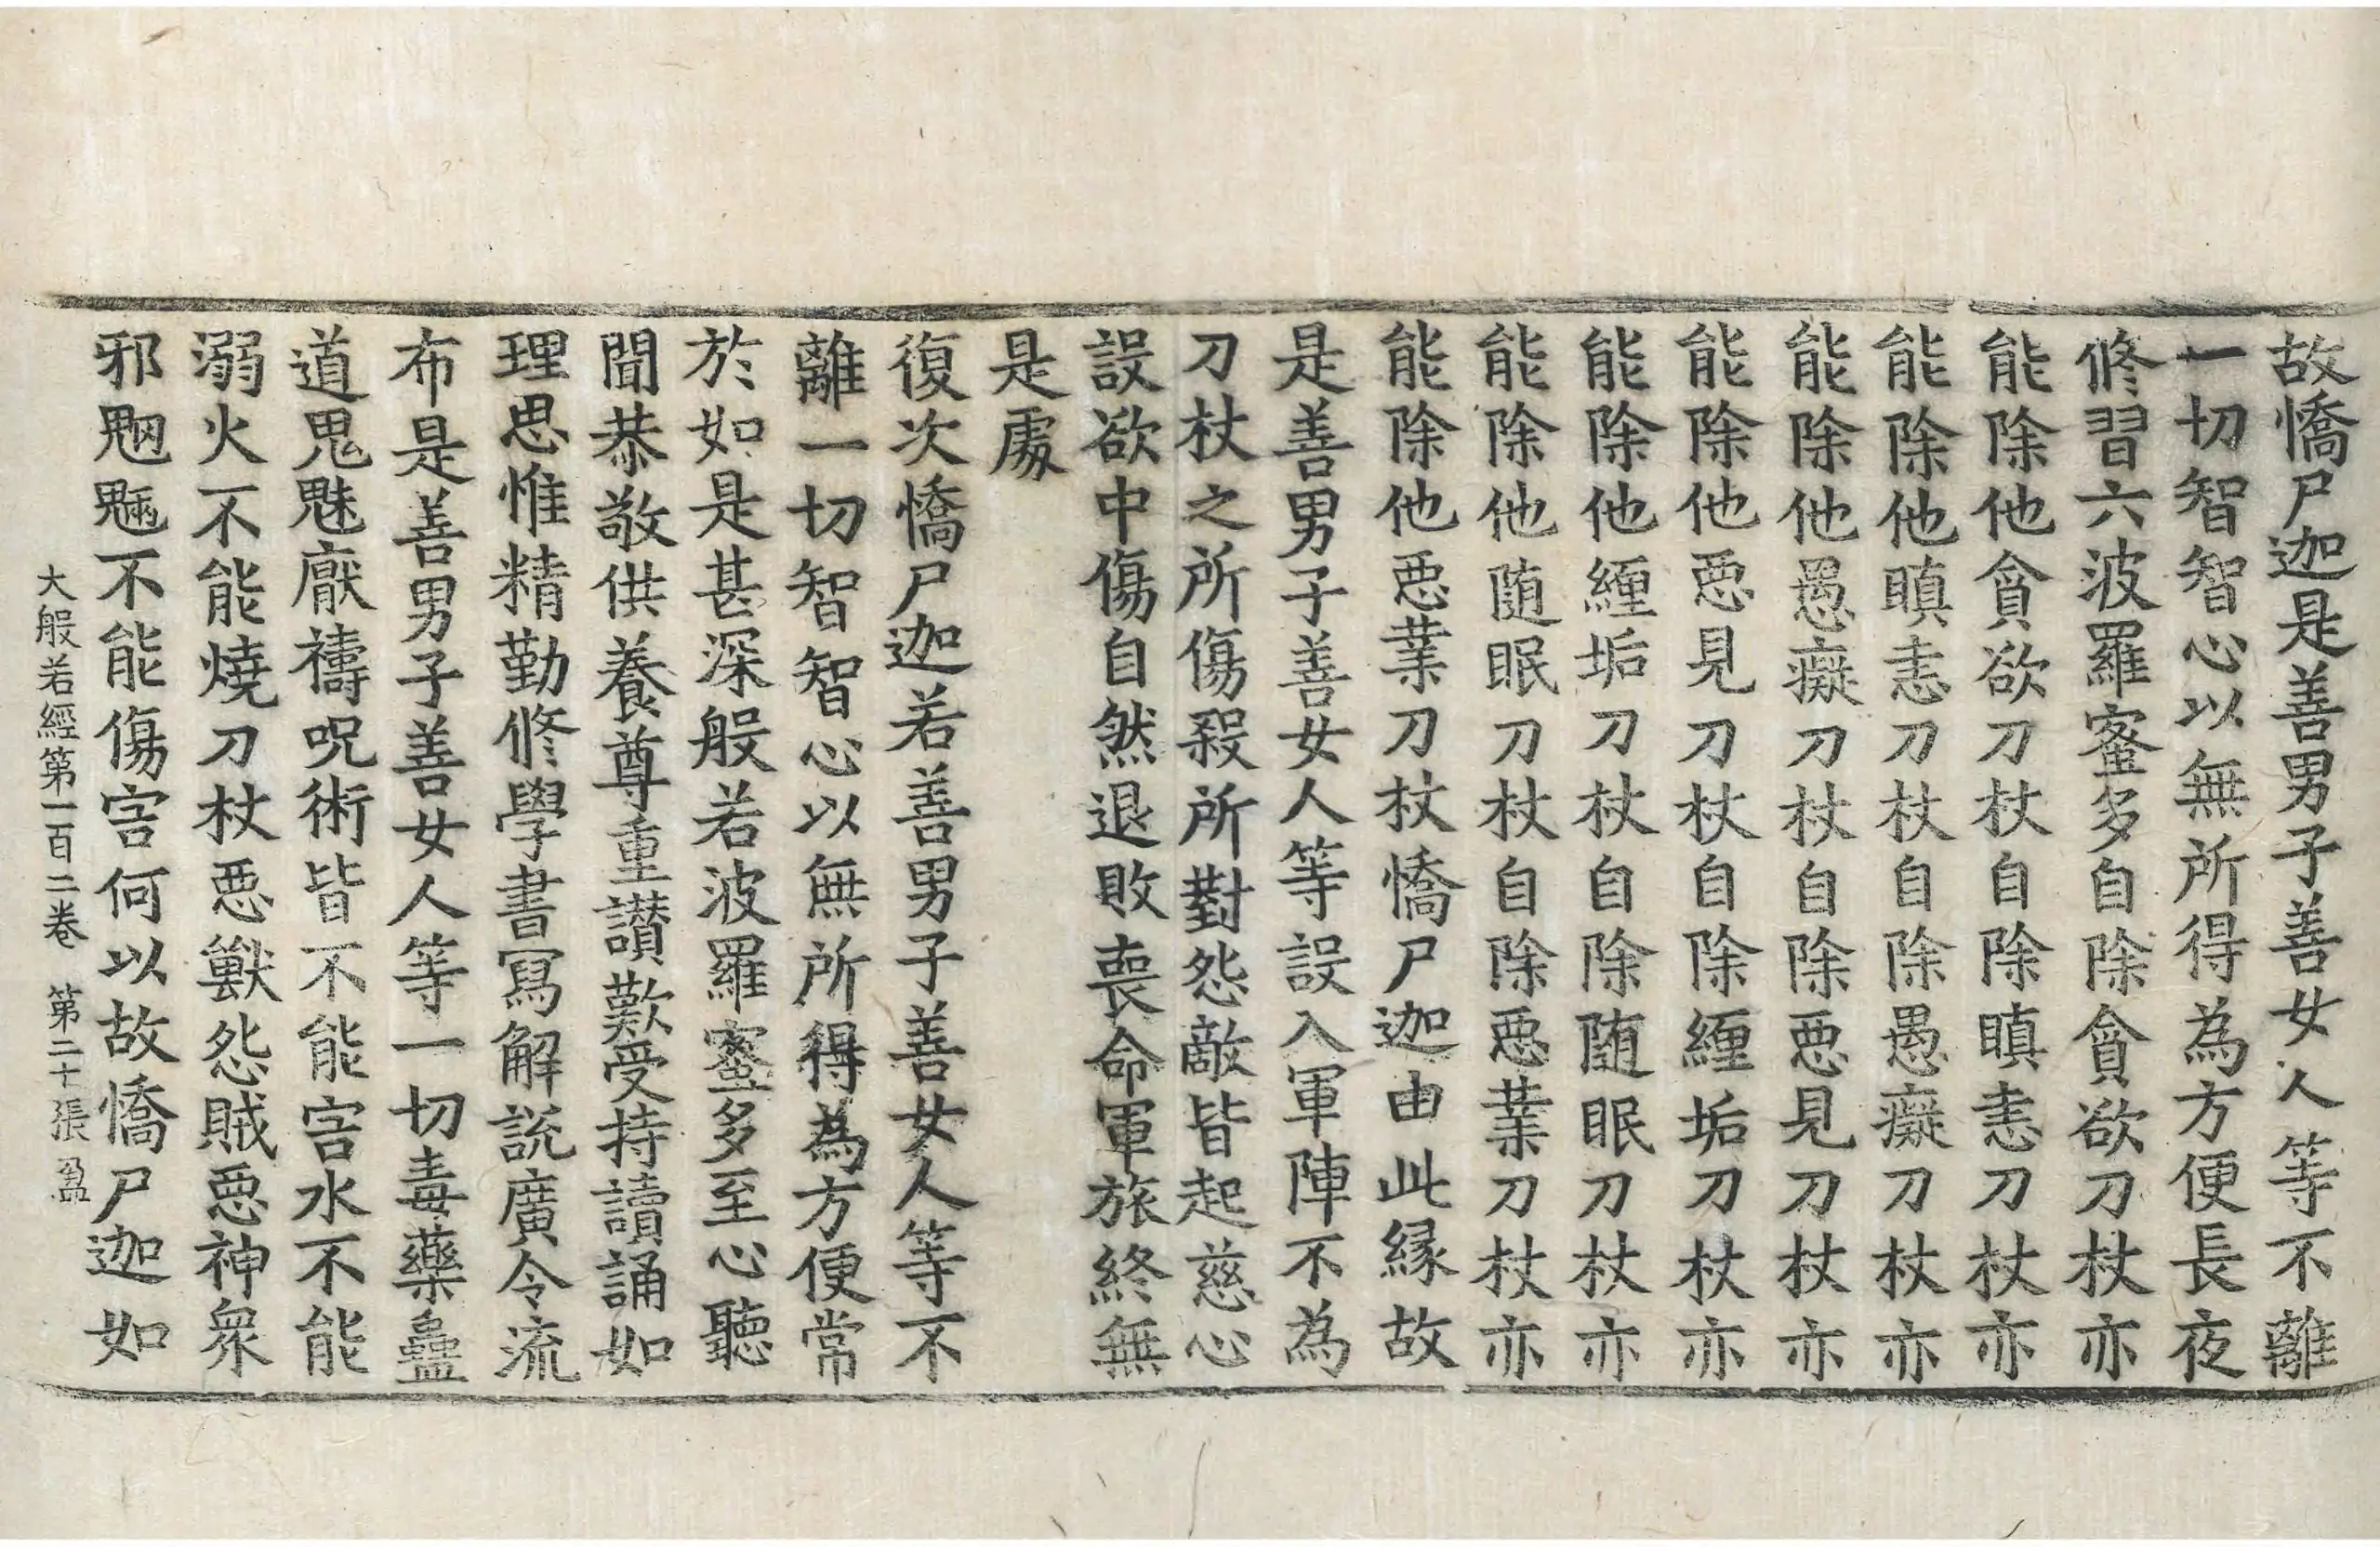 故憍尸迦是善男子善女人等不離
一切智智心以無所得為方便長夜
修習六波羅蜜多自除貪欲刀杖亦
能除他貪欲刀杖自除瞋恚刀杖亦
能除他瞋恚刀杖自除愚癡刀杖亦
能除他愚癡刀杖自除惡見刀杖亦
能除他惡見刀杖自除纏垢刀杖亦
能除他纏垢刀杖自除随眠刀杖亦
能除他随眠刀杖自除惡業刀杖亦
能除他惡業刀杖憍尸迦由此縁故
是善男子善女人等設入軍陣不為
刀杖之所傷殺所對怨敵皆起慈心
設欲中傷自然退敗喪命軍旅終無
是處
復次憍尸迦若善男子善女人等不
離一切智智心以無所得為方便常
於如是甚深般若波羅蜜多至心聽
聞恭敬供養尊重讃歎受持讀誦如
理思惟精勤修學書寫解說廣令流
布是善男子善女人等一切毒藥蠱
道鬼魅厭禱呪術皆不能害水不能
溺火不能燒刀杖惡獸怨賊惡神衆
邪魍魎不能傷害何以故憍尸迦如
大般若經第一百二卷 第二十張 盈